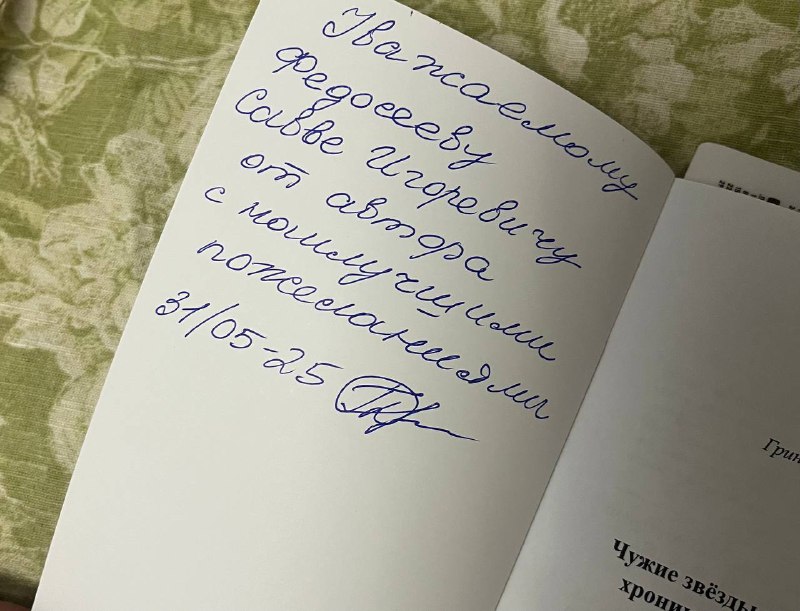 Уважаемому
Федосееву
Савве Игоревичу
от автора
с наилучшими
пожеланиями
31/05-25
Грин
Чужие звёзды
хрони